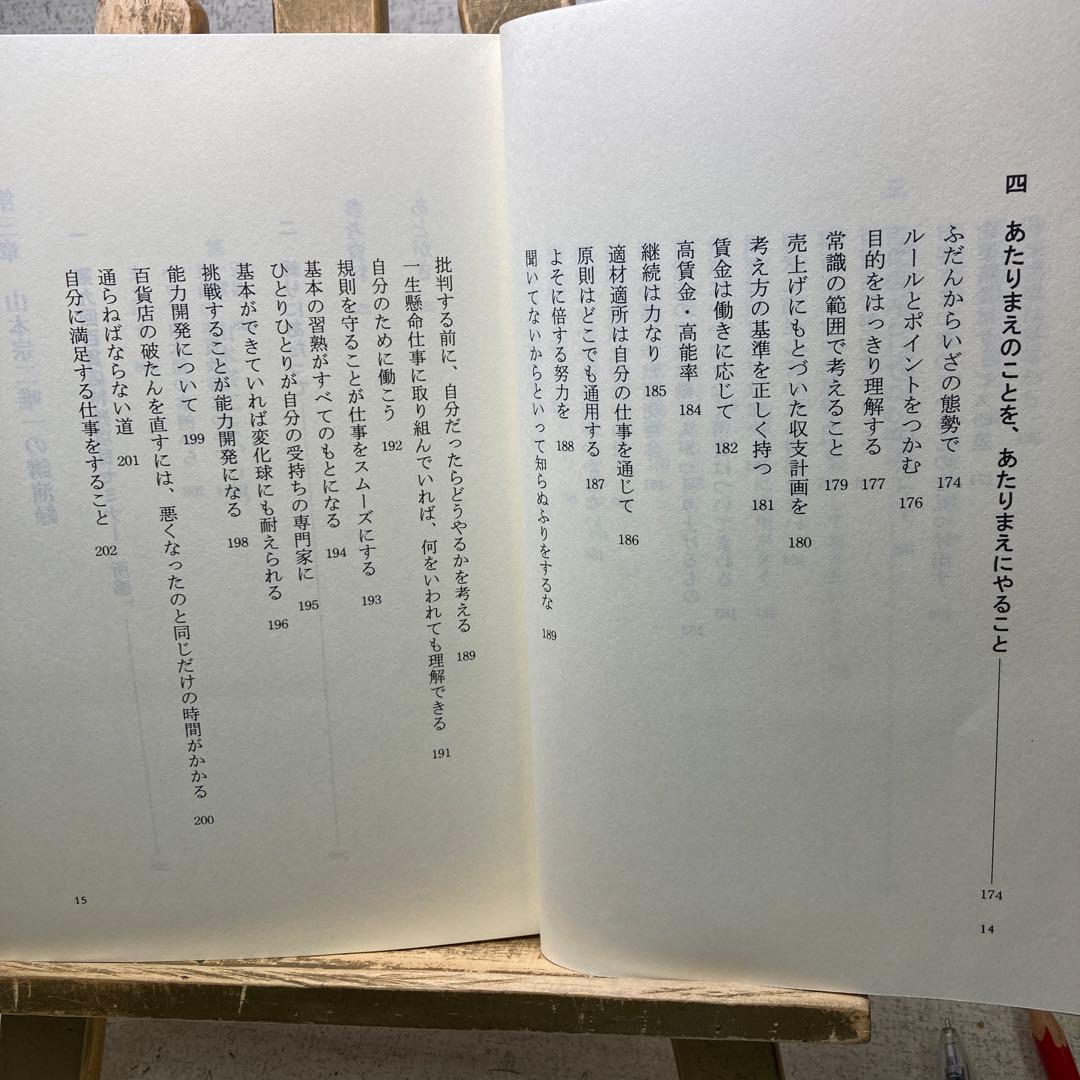 四 あたりまえのことを、あたりまえにやること 174
ふだんからいざの態勢で 174
ルールとポイントをつかむ 176
目的をはっきり理解する 177
常識の範囲で考えること 179
売上げにもとづいた収支計画を 180
考え方の基準を正しく持つ 181
賃金は働きに応じて 182
高賃金・高能率 184
継続は力なり 185
適材適所は自分の仕事を通じて 186
原則はどこでも通用する 187
よそに倍する努力を 188
聞いてないからといって知らぬふりをするな 189
14
批判する前に、自分だったらどうやるかを考える 189
一生懸命仕事に取り組んでいれば、何をいわれても理解できる 191
自分のために働こう 192
規則を守ることが仕事をスムーズにする 193
基本の習熟がすべてのもとになる 194
ひとりひとりが自分の受持ちの専門家に 195
基本ができていれば変化球にも耐えられる 196
挑戦することが能力開発になる 198
能力開発について 199
百貨店の破たんを直すには、悪くなったのと同じだけの時間がかかる 200
通らねばならない道 201
自分に満足する仕事をすること 202
15